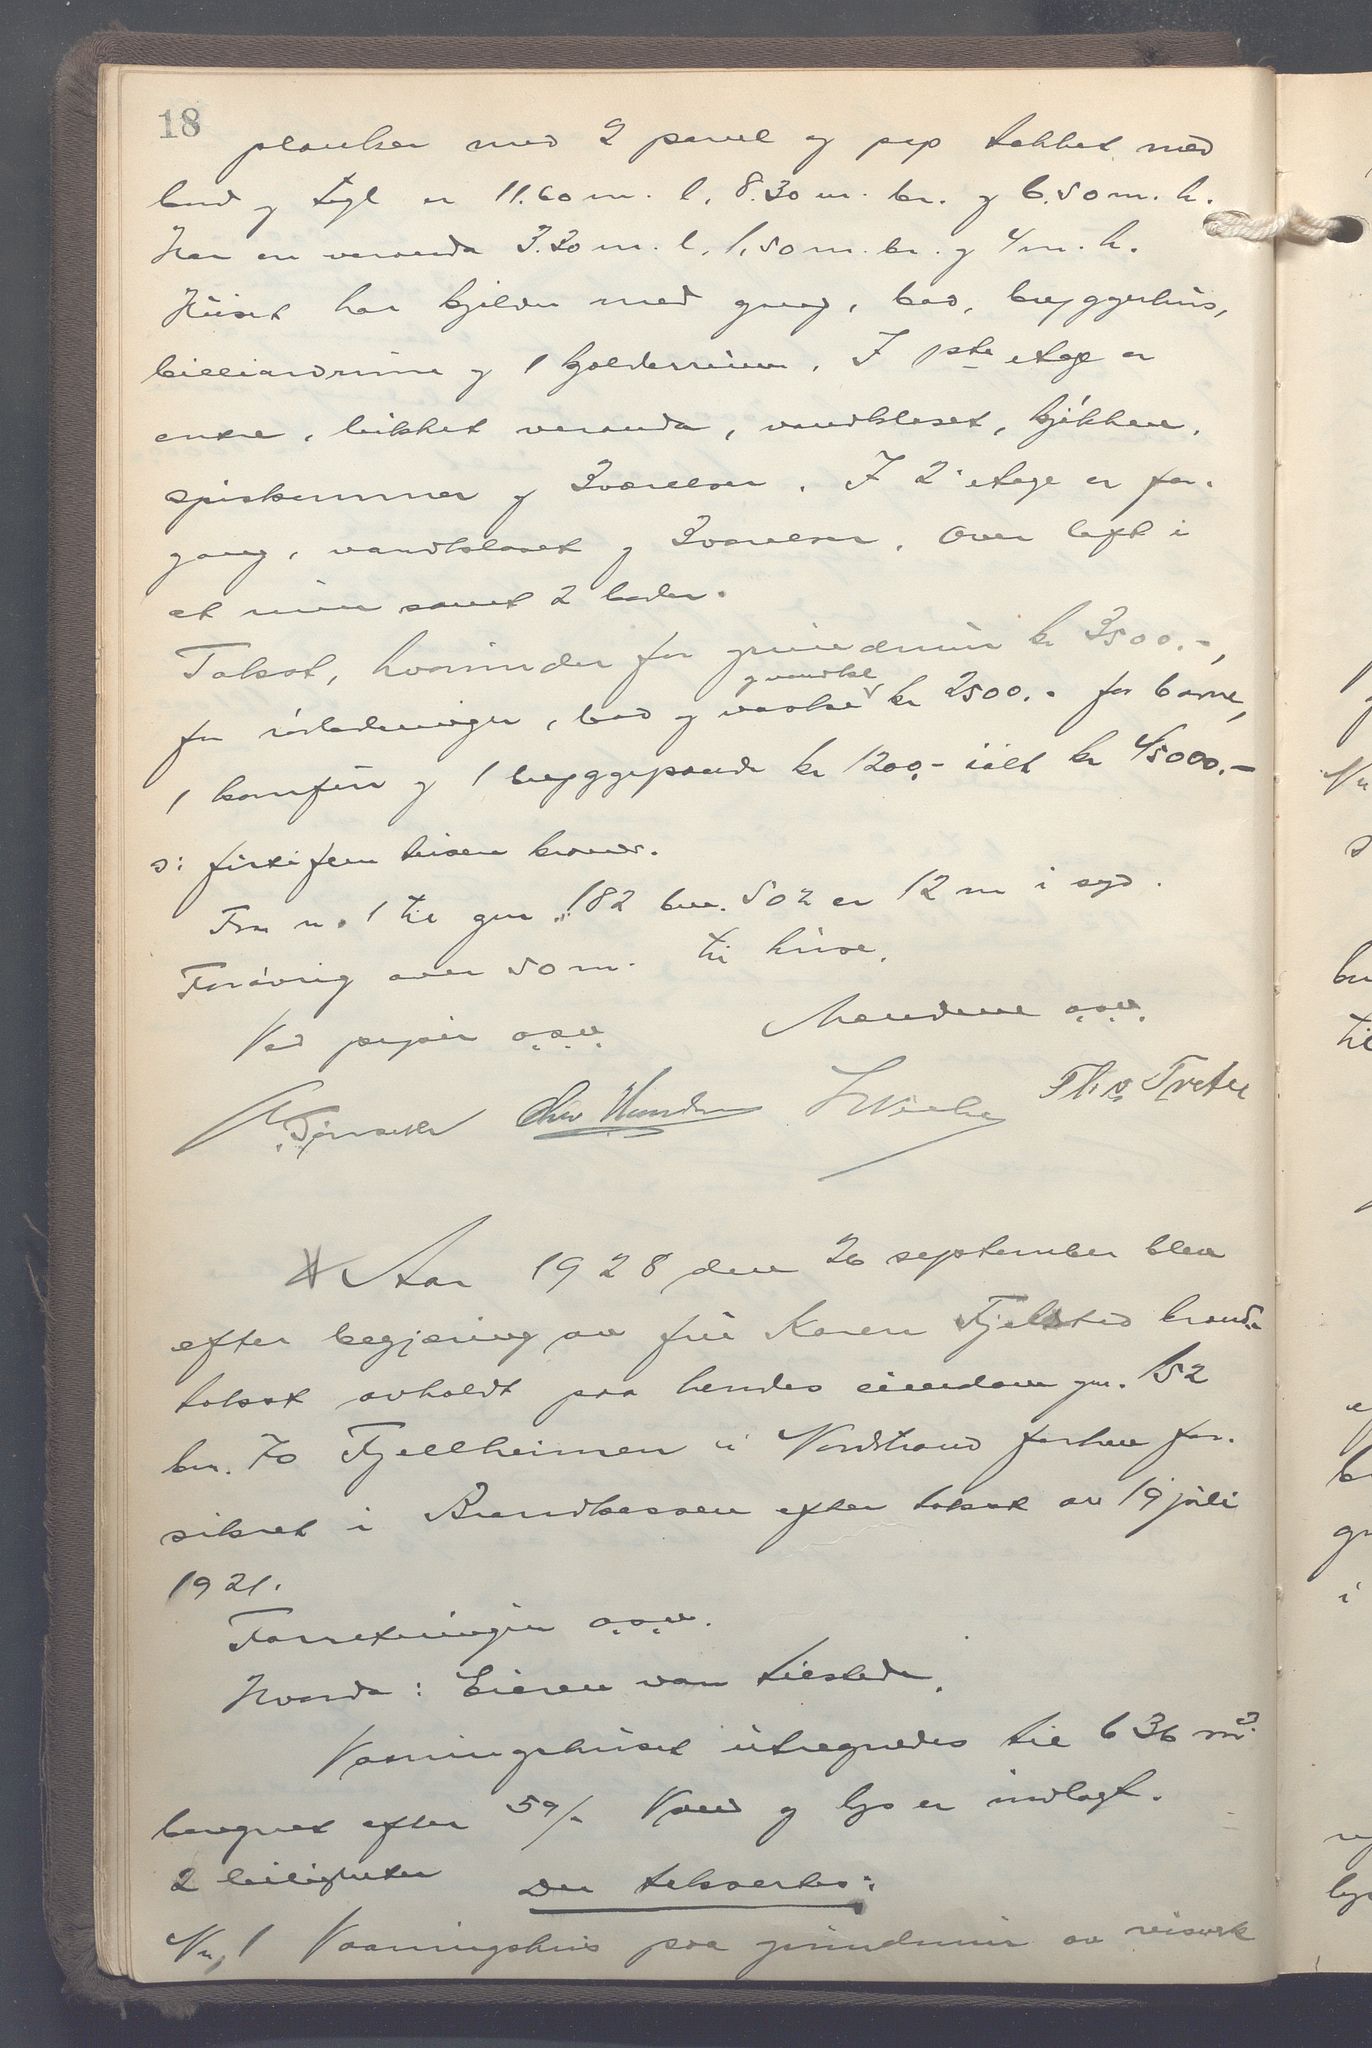 18
planker med 2 panel og pap tækket med
bord og tegl er 11.60 m. l. 8.30 m. br. og 6.50 m. h.
Har en veranda 3.30 m. l. 1.50 m. br. og 4 m. h.
Huset har kjelder med gang, bad, bryggerhus,
billiardrum og 1 kjolderrum. I 1ste etage er
entre, lukket veranda, vandkloset, kjökken,
spiskammer og 3 værelser. I 2. etage er for-
gang, vandkloset og 3 værelser. Over loft i
et rum samt 2 boder.
Takst, hvorunder for grundmur kr 3500.-,
og vandkl
for rörledninger, bad og vaske kr 2500.- for 6 ovne,
1 komfur og 1 bryggepande kr 1200.- ialt kr 45000.-
ɔ: förtifem tusen kroner.
Fra n. 1 til gnr. 182 bnr. 502 er 12 m i syd.
Forövrig over 50 m. til huse.
Ved papir o.s.v. Mændene o.s.v.
Thv Tveter
Aar 1928 den 26 september blev
efter begjæring av fru Karen Fjelstad brand-
takst avholdt paa hendes eiendom gnr. 152
bnr. 70 Fjellheimen i Nordstrand forhen for-
sikret i Brandkassen efter takst av 19 juli
1921.
Forretningen o.s.v.
Hvorda: Eieren var tilstede.
Vaaningshuset utregnedes til 636 m³
beregnet efter 59/- Vand og lys er indlagt.
2 leiligheter Der taksertes:
Nr. 1 Vaaningshus paa grundmur av